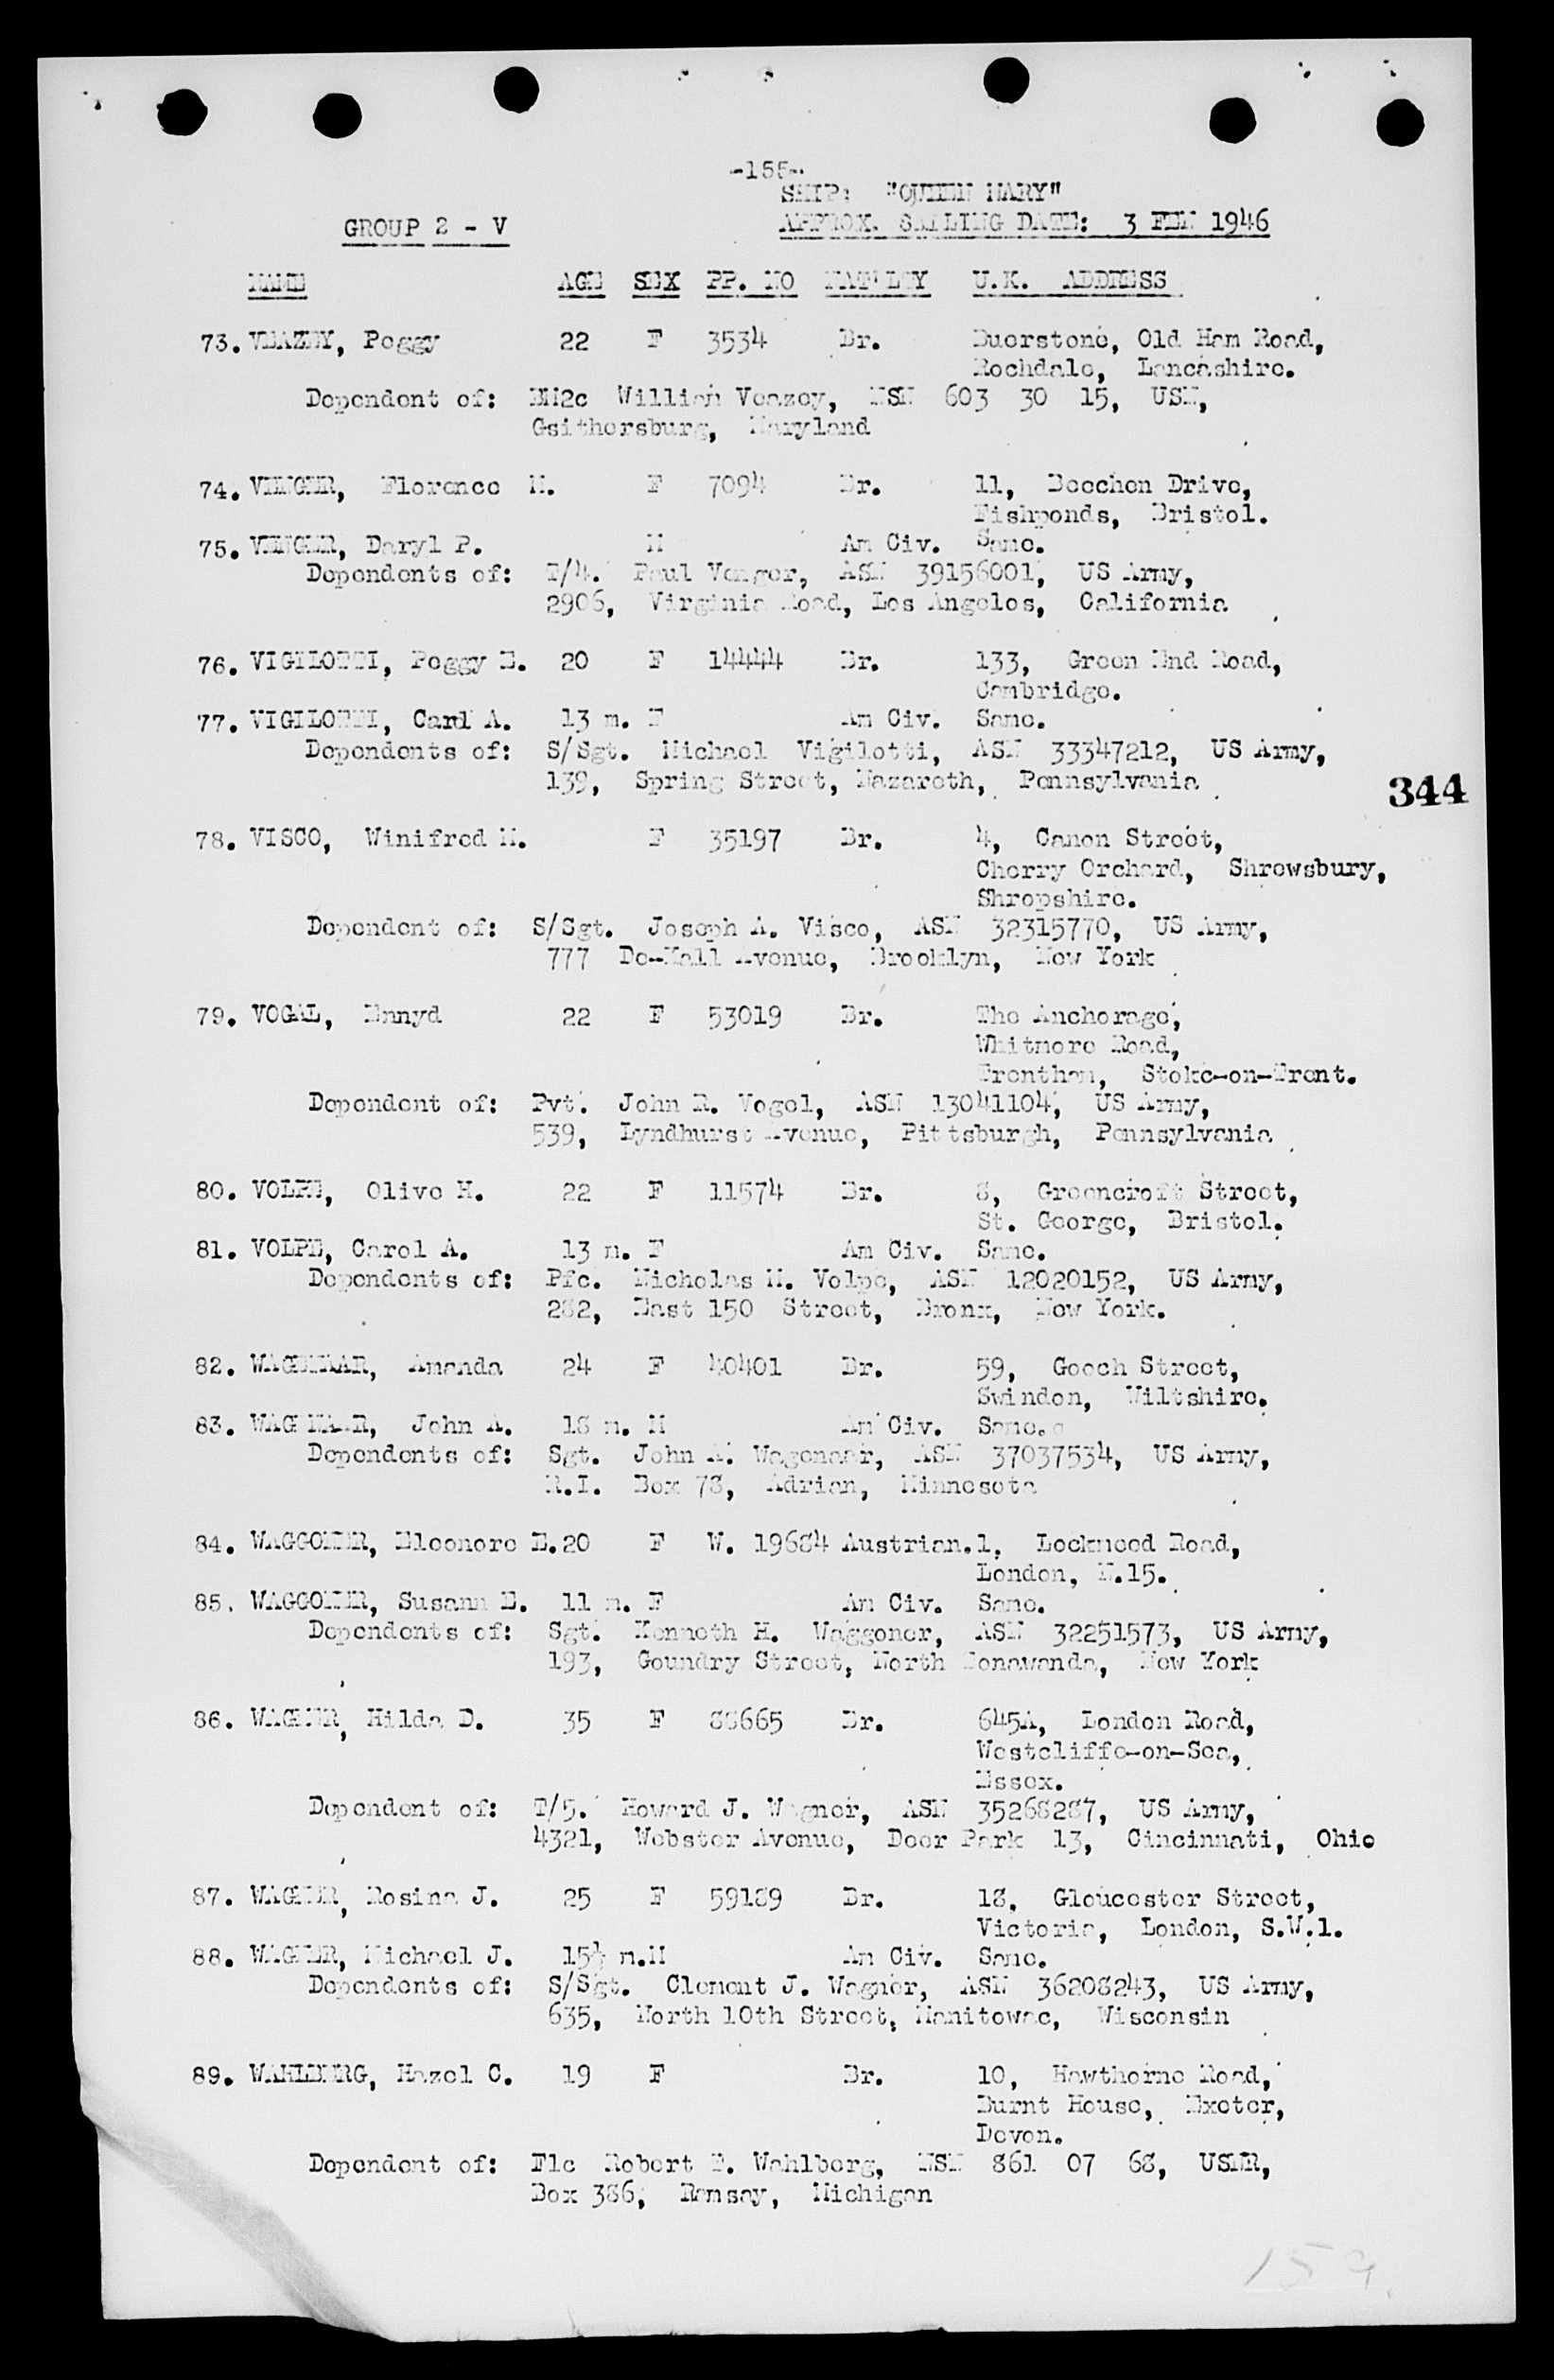 -155-
SHIP: "QUEEN MARY"
GROUP 2 - V
APPROX. SAILING DATE: 3 FEB 1946
NAME AGE SEX PP. NO NAT'LTY U.K. ADDRESS
73. VEAZEY, Peggy 22 F 3534 Br. Buerstone, Old Ham Road,
Rochdale, Lancashire.
Dependent of: William Veazey, NSN 603 30 15, USN,
Gsithersburg, Maryland
74. VENGER, Florence M. F 7094 Br. 11, Beechen Drive,
Fishponds, Bristol.
75. VENGER, Daryl P. M Am Civ. Same.
Dependents of: T/4. Paul Venger, ASN 39156001, US Army,
2906, Virginia Road, Los Angeles, California
76. VIGILOTTI, Peggy E. 20 F 14444 Br. 133, Green End Road,
Cambridge.
77. VIGILOTTI, Carol A. 13 m. F Am Civ. Same.
Dependents of: S/Sgt. Michael Vigilotti, ASN 33347212, US Army,
139, Spring Street, Nazareth, Pennsylvania
344
78. VISCO, Winifred M. F 35197 Br. 4, Canon Street,
Cherry Orchard, Shrewsbury,
Shropshire.
Dependent of: S/Sgt. Joseph A. Visco, ASN 32315770, US Army,
777 De-Kall Avenue, Brooklyn, New York
79. VOGAL, Ennyd 22 F 53019 Br. The Anchorage,
Whitmore Road,
Trentham, Stoke-on-Trent.
Dependent of: Pvt. John R. Vogel, ASN 13041104, US Army,
539, Lyndhurst Avenue, Pittsburgh, Pennsylvania
80. VOLPE, Olive H. 22 F 11574 Br. 8, Greencroft Street,
St. George, Bristol.
81. VOLPE, Carol A. 13 m. F Am Civ. Same.
Dependents of: Pfc. Nicholas M. Volpe, ASN 12020152, US Army,
282, East 150 Street, Bronx, New York.
82. WAGENAAR, Amanda 24 F 40401 Br. 59, Gooch Street,
Swindon, Wiltshire.
83. WAGENAAR, John A. 18 m. M Am Civ. Same.
Dependents of: Sgt. John A. Wagenaar, ASN 37037534, US Army,
R.I. Box 78, Adrian, Minnesota
84. WAGGONER, Eleonore E. 20 F W. 19684 Austrian. 1, Lockmeed Road,
London, N.15.
85. WAGGONER, Susann E. 11 m. F Am Civ. Same.
Dependents of: Sgt. Kenneth H. Waggoner, ASN 32251573, US Army,
193, Goundry Street, North Tonawanda, New York
86. WAGNER, Hilda D. 35 F 88665 Br. 645A, London Road,
Westcliffe-on-Sea,
Essex.
Dependent of: T/5. Howard J. Wagner, ASN 35268287, US Army,
4321, Webster Avenue, Deer Park 13, Cincinnati, Ohio
87. WAGNER, Rosina J. 25 F 59189 Br. 18, Gloucester Street,
Victoria, London, S.W.1.
88. WAGNER, Michael J. 15½ m. M Am Civ. Same.
Dependents of: S/Sgt. Clement J. Wagner, ASN 36208243, US Army,
635, North 10th Street, Manitowac, Wisconsin
89. WAHLBERG, Hazel C. 19 F Br. 10, Hawthorne Road,
Burnt House, Exeter,
Devon.
Dependent of: F1c Robert T. Wahlberg, NSN 861 07 68, USNR,
Box 386, Ramsay, Michigan
159.